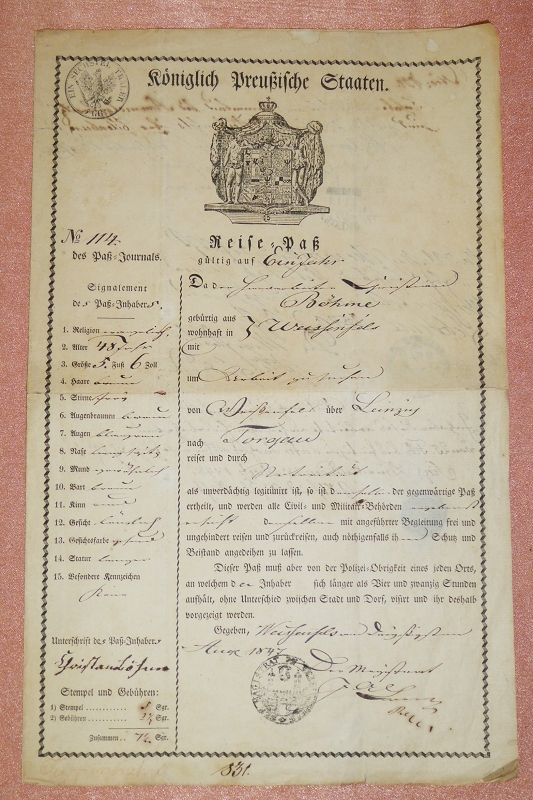 Königlich Preußische Staaten.
No 114.
des Paß-Journals.
Signalement
des Paß-Inhabers
1. Religion evangelisch
2. Alter 48 Jahr
3. Größe 5. Fuß 6 Zoll
4. Haare braun
5. Stirne frei
6. Augenbraunen braun
7. Augen blaugrau
8. Nase
9. Mund gewöhnlich
10. Bart braun
11. Kinn rund
12. Gesicht länglich
13. Gesichtsfarbe gesund
14. Statur
15. Besondere Kennzeichen
Keine
Unterschrift des Paß-Inhabers
Christian Böhme
Stempel und Gebühren:
1) Stempel . . . . . . . . . . Sgr.
2) Gebühren . . . . . . . . Sgr.
Zusammen . . 7½ Sgr.
Reise-Paß
gültig auf Ein Jahr
Da der Handarbeiter Christian
Böhme
gebürtig aus
wohnhaft in } Weissenfels
mit
um Arbeit zu suchen
von Weißenfels über Leipzig
nach Torgau
reiset und durch
als unverdächtig legitimirt ist, so ist demselben der gegenwärtige Paß
ertheilt, und werden alle Civil- und Militair-Behörden
ersucht denselben mit angeführter Begleitung frei und
ungehindert reisen und zurückreisen, auch nöthigenfalls ihm Schutz und
Beistand angedeihen zu lassen.
Dieser Paß muß aber von der Polizei-Obrigkeit eines jeden Orts,
an welchem der Inhaber sich länger als Vier und zwanzig Stunden
aufhält, ohne Unterschied zwischen Stadt und Dorf, visirt und ihr deshalb
vorgezeigt werden.
Gegeben, Weissenfels am Dreißigsten
Aug. 1847
Der Magistrat
831.